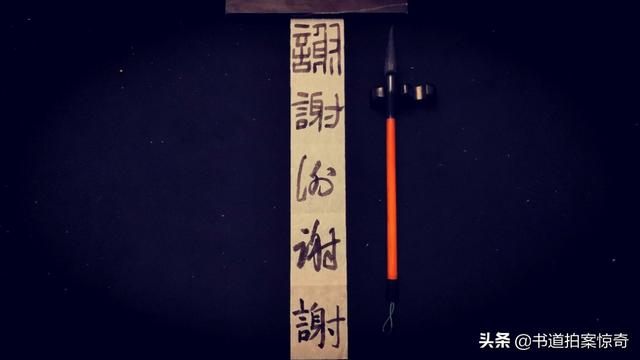 謝
謝
谢
謝
謝
头条 @书道拍案惊奇